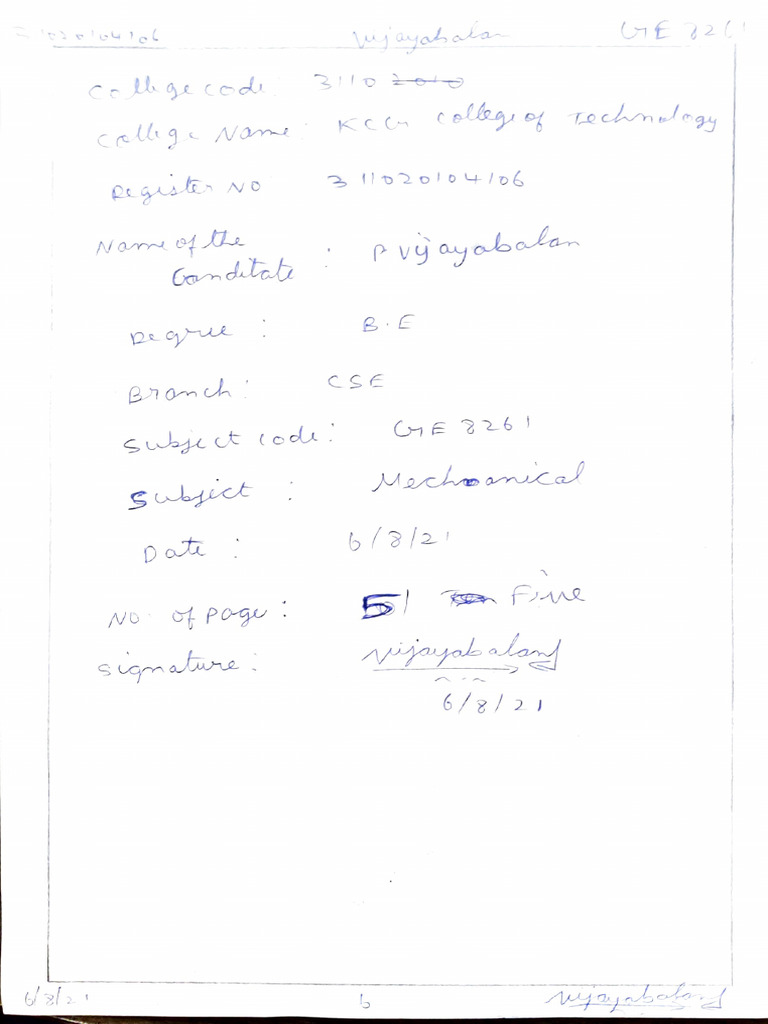 311020104106 Vijayabalan GE 8261
College code: 3110 2010
College Name: KCG College of Technology
Register NO 311020104106
Name of the : P Vijayabalan
Canditate
Degree : B.E
Branch: CSE
Subject code: GE 8261
Subject : Mechanical
Date : 6/8/21
NO. of page: 5/ Five
Signature: Vijayabalan
6/8/21
6/8/21 6 Vijayabalan